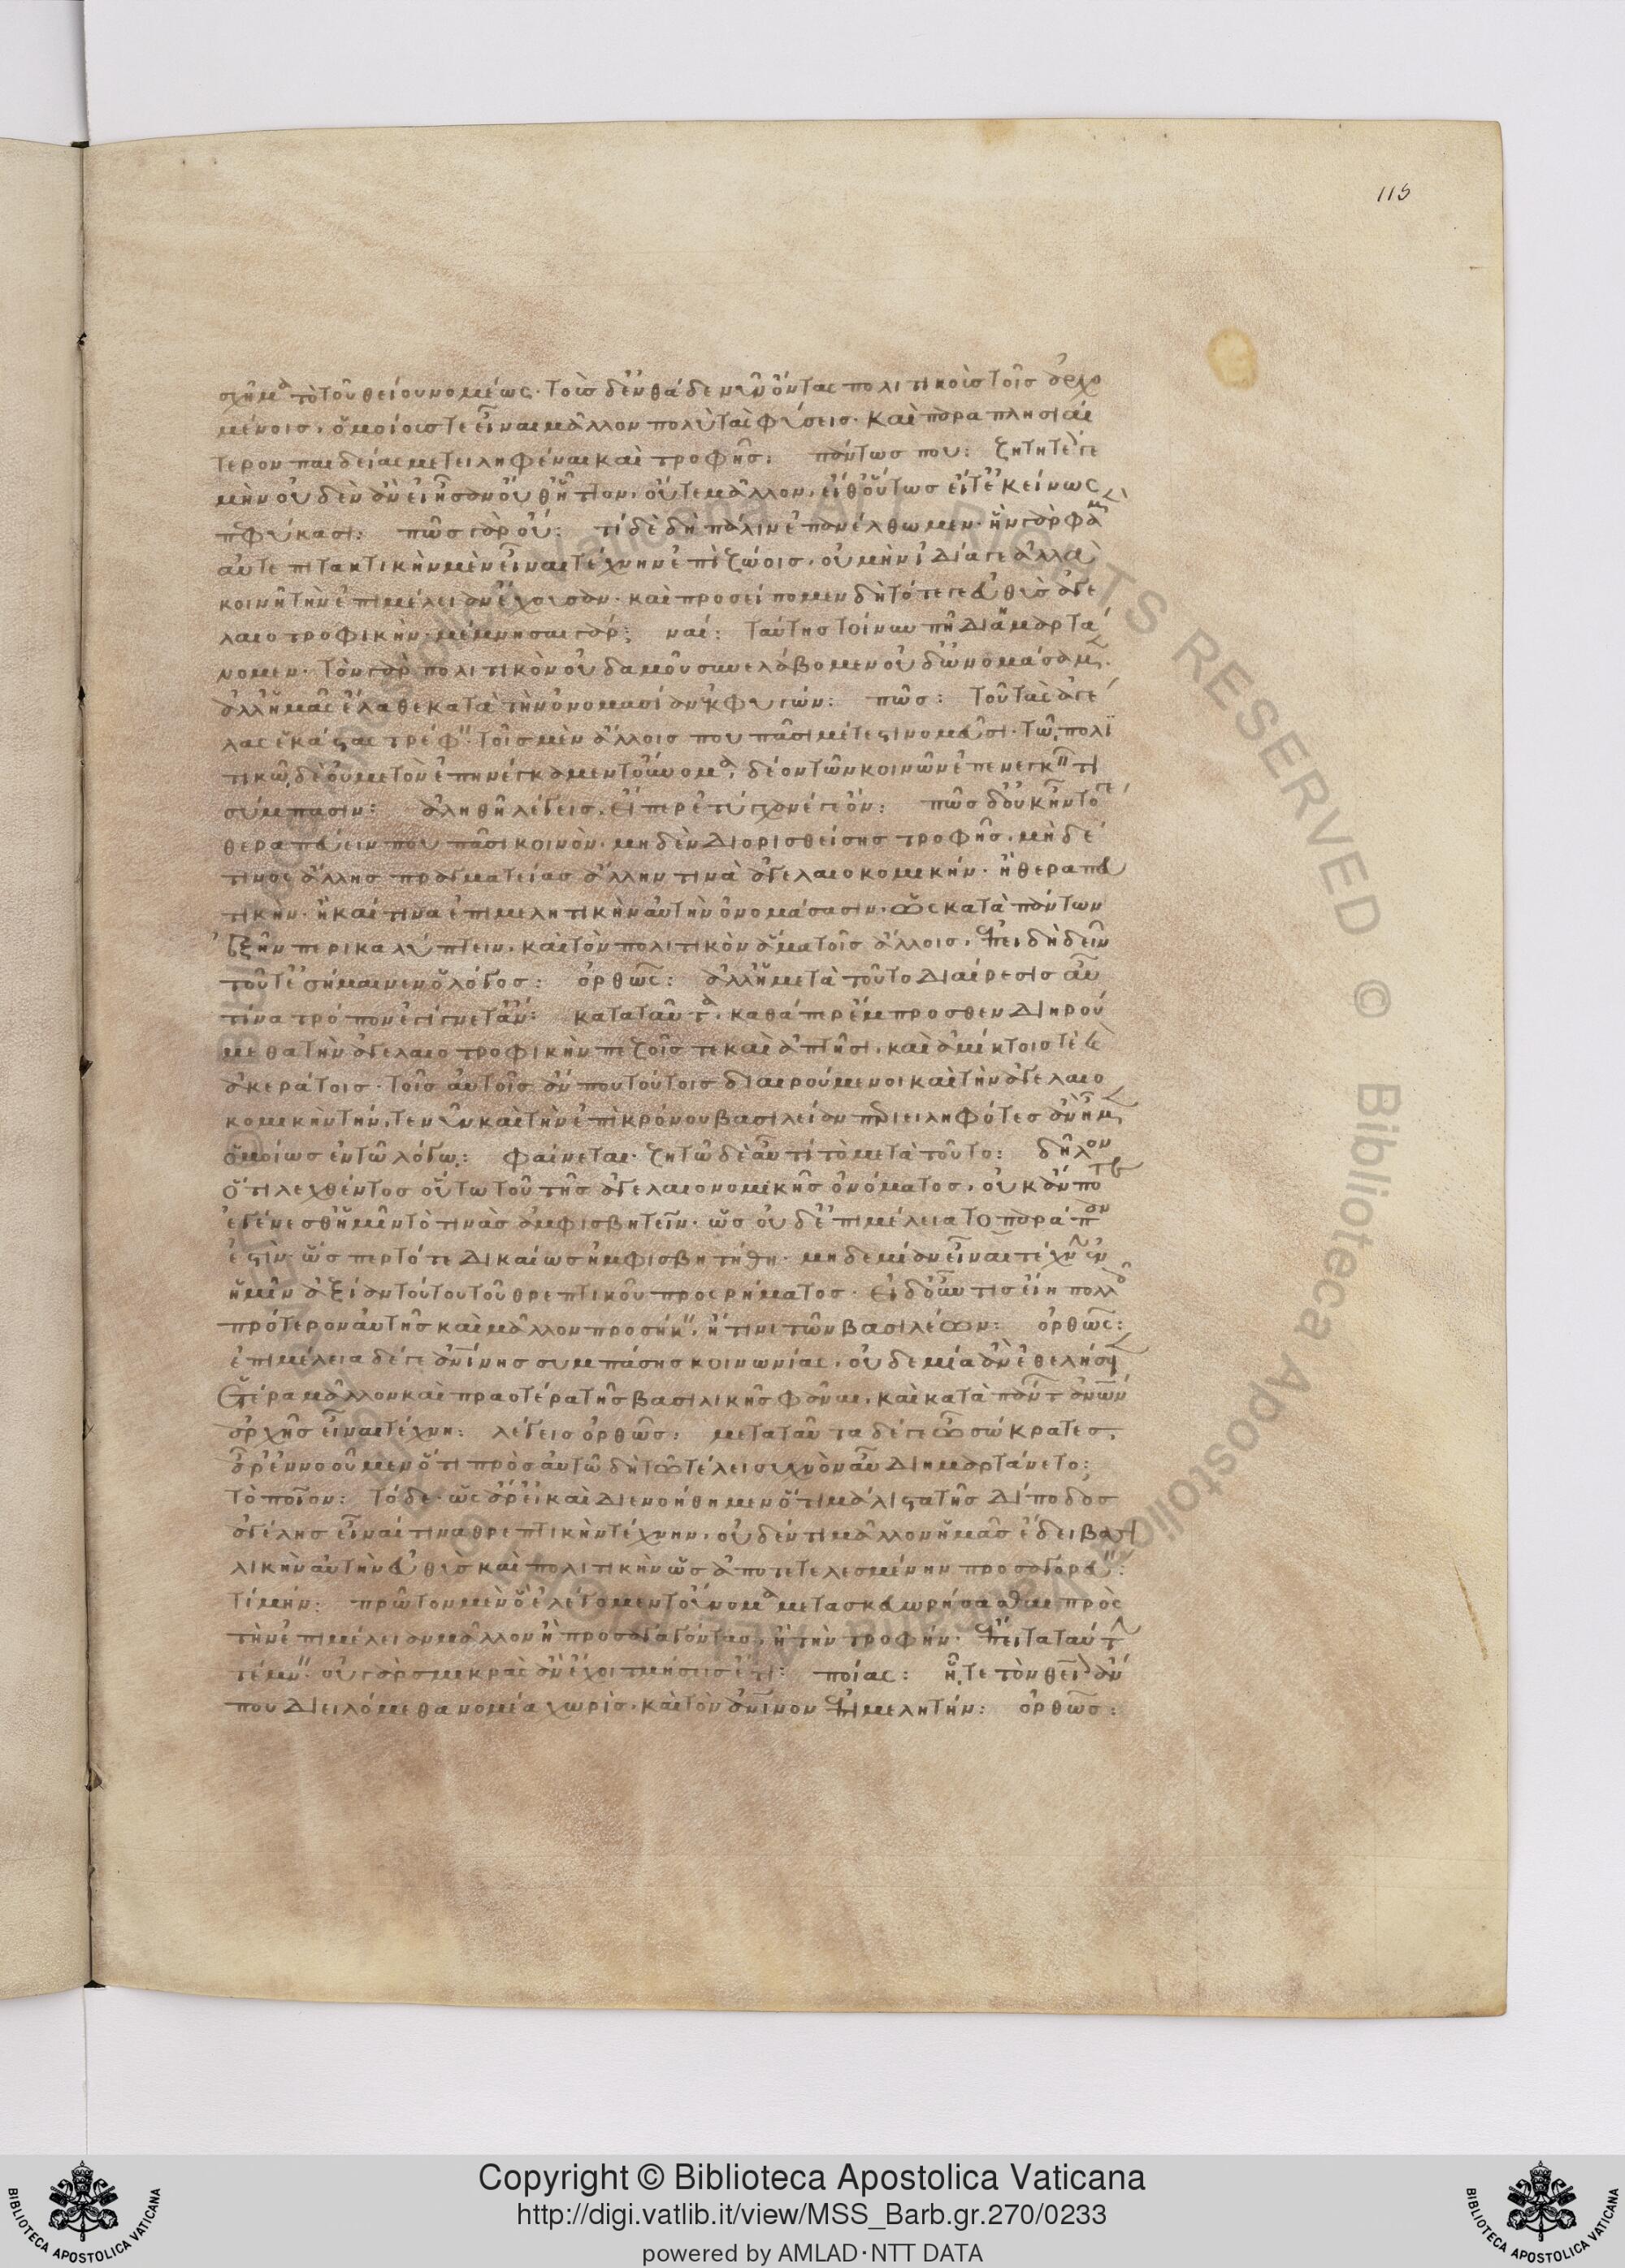 115
σχῆμα τὸ τοῦ θείου νομέως· τοὺς δ' ἐνθάδε νῦν ὄντας πολιτικοὺς τοῖς ἀρχο
μένοις, ὁμοίους τε εἶναι μᾶλλον πολὺ τὰς φύσεις· καὶ παραπλησιαί
τερον παιδείας μετειληφέναι καὶ τροφῆς: πάντως που: ζητητέοι γε
μὴν οὐδὲν ἂν εἴησαν οὔθ' ἧττον, οὔτε μᾶλλον, εἴθ' οὕτως εἴτ' ἐκείνως
πεφύκασι: πῶς γὰρ οὔ: τί δὲ δὴ πάλιν ἐπανέλθωμεν· ἣν γὰρ φαμεν
αὐτεπιτακτικὴν μὲν εἶναι τέχνην ἐπὶ ζώοις, οὐ μὴν ἰδίᾳ γε ἀλλὰ
κοινῇ τὴν ἐπιμέλειαν ἔχουσαν· καὶ προσείπομεν δὴ τότε γε εὐθὺς ἀγε
λαιοτροφικήν· μέμνησαι γάρ; ναί: ταύτης τοίνυν πῃ διημαρτά
νομεν· τὸν γὰρ πολιτικὸν οὐδαμοῦ συνελάβομεν οὐδ' ὠνομάσαμεν.
ἀλλ' ἡμᾶς ἔλαθε κατὰ τὴν ὀνομασίαν ἐκφυγών: πῶς: τοῦ τὰς ἀγέ
λας ἑκάστας τρέφειν· τοῖς μὲν ἄλλοις που πᾶσι μέτεστι νομεῦσι· τῷ πολι
τικῷ δὲ οὐ μετὸν ἐπηνέγκαμεν τοὔνομα, δέον τῶν κοινῶν ἐπενεγκεῖν τι
σύμπασιν: ἀληθῆ λέγεις, εἴπερ ἐτύγχανέ γε ὄν: πῶς δ' οὐκ ἦν τό γε
θεραπεύειν που πᾶσι κοινὸν, μηδὲν διορισθείσης τροφῆς, μηδέ
τινος ἄλλης πραγματείας ἀλλ' ἤν τινα ἀγελαιοκομικήν· ἢ θεραπευ
τικήν· ἢ καί τινα ἐπιμελητικὴν αὐτὴν ὀνομάσασιν, ὡς κατὰ πάντων
ἐξῆν περικαλύπτειν, καὶ τὸν πολιτικὸν ἅμα τοῖς ἄλλοις, ἐπειδὴ δεῖν
τοῦτ' ἐσήμαινεν ὁ λόγος: ὀρθῶς: ἀλλ' ἡ μετὰ τοῦτο διαίρεσις αὖ
τίνα τρόπον ἐγίγνετ' ἄν: κατὰ ταὐτὰ, καθάπερ ἔμπροσθεν διῃρού
μεθα τὴν ἀγελαιοτροφικὴν πεζοῖς τε καὶ ἀπτῆσι, καὶ ἀμίκτοις τε καὶ
ἀκεράτοις· τοῖς αὐτοῖς ἄν που τούτοις διαιρούμενοι καὶ τὴν ἀγελαιο
κομικὴν τήν τε νῦν καὶ τὴν ἐπὶ κρόνου βασιλείαν περιειληφότες ἂν ἦμεν
ὁμοίως ἐν τῷ λόγῳ: φαίνεται· ζητῶ δὲ αὖ τί τὸ μετὰ τοῦτο: δῆλον
ὅτι λεχθέντος οὕτω τοῦ τῆς ἀγελαιονομικῆς ὀνόματος, οὐκ ἄν ποτε
ἐγένεσθ' ἡμῖν τό τινας ἀμφισβητεῖν· ὡς οὐδ' ἐπιμέλεια τὸ παράπαν
ἐστὶν· ὥσπερ τότε δικαίως ἠμφισβητήθη· μηδεμίαν εἶναι τέχνην ἐν
ἡμῖν ἀξίαν τούτου τοῦ θρεπτικοῦ προσρήματος· εἰ δ' οὖν τις εἴη πολλοῖς
πρότερον αὐτῆς καὶ μᾶλλον προσήκειν, ἤ τινι τῶν βασιλέων: ὀρθῶς:
ἐπιμέλεια δέ γε ἀνθρωπίνης συμπάσης κοινωνίας, οὐδεμία ἂν ἐθελήσειεν
ἑτέρα μᾶλλον καὶ πραοτέρα τῆς βασιλικῆς φάναι, καὶ κατὰ πάντων ἀνθρώπων
ἀρχῆς εἶναι τέχνη: λέγεις ὀρθῶς: μετὰ ταῦτα δέ γε ὦ σώκρατες,
ἆρ' ἐννοοῦμεν ὅτι πρὸς αὐτῷ δὴ τῷ τέλει συχνὸν αὖ διημαρτάνετο;
τὸ ποῖον: τόδε· ὡς ἄρ' εἰ καὶ διενοήθημεν ὅτι μάλιστα τῆς δίποδος
ἀγέλης εἶναί τινα θρεπτικὴν τέχνην, οὐδέν τι μᾶλλον ἡμᾶς ἔδει βασι
λικὴν αὐτὴν εὐθὺς καὶ πολιτικὴν ὡς ἀποτετελεσμένην προσαγορεύειν:
τί μήν: πρῶτον μὲν ὃ ἐλέγομεν τοὔνομα μετασκευωρήσασθαι πρὸς
τὴν ἐπιμέλειαν μᾶλλον ἢ προσαγαγόντας, ἢ τὴν τροφήν· ἔπειτα ταύτην
τέμνειν· οὐ γὰρ σμικρὰς ἂν ἔχοι τμήσεις ἔτι: ποίας: ᾗ τε τὸν θεῖον ἄν
που διειλόμεθα νομέα χωρίς, καὶ τὸν ἀνθρώπινον ἐπιμελητήν: ὀρθῶς:
Copyright © Biblioteca Apostolica Vaticana
http://digi.vatlib.it/view/MSS_Barb.gr.270/0233
powered by AMLAD·NTT DATA